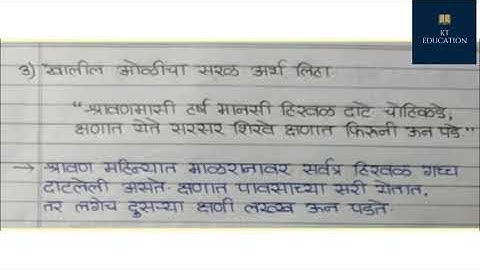 KT
EDUCATION
३) खालील ओळींचा सरळ अर्थ लिहा
"श्रावणमासी हर्ष मानसी हिरवळ दाटे चोहिकडे,
क्षणात येते सरसर शिरवे क्षणात फिरुनी ऊन पडे."
→ श्रावण महिन्यात माळरानावर सर्वत्र हिरवळ गच्च
दाटलेली असते. क्षणात पावसाच्या सरी येतात.
तर लगेच दुसऱ्या क्षणी लख्ख ऊन पडते.